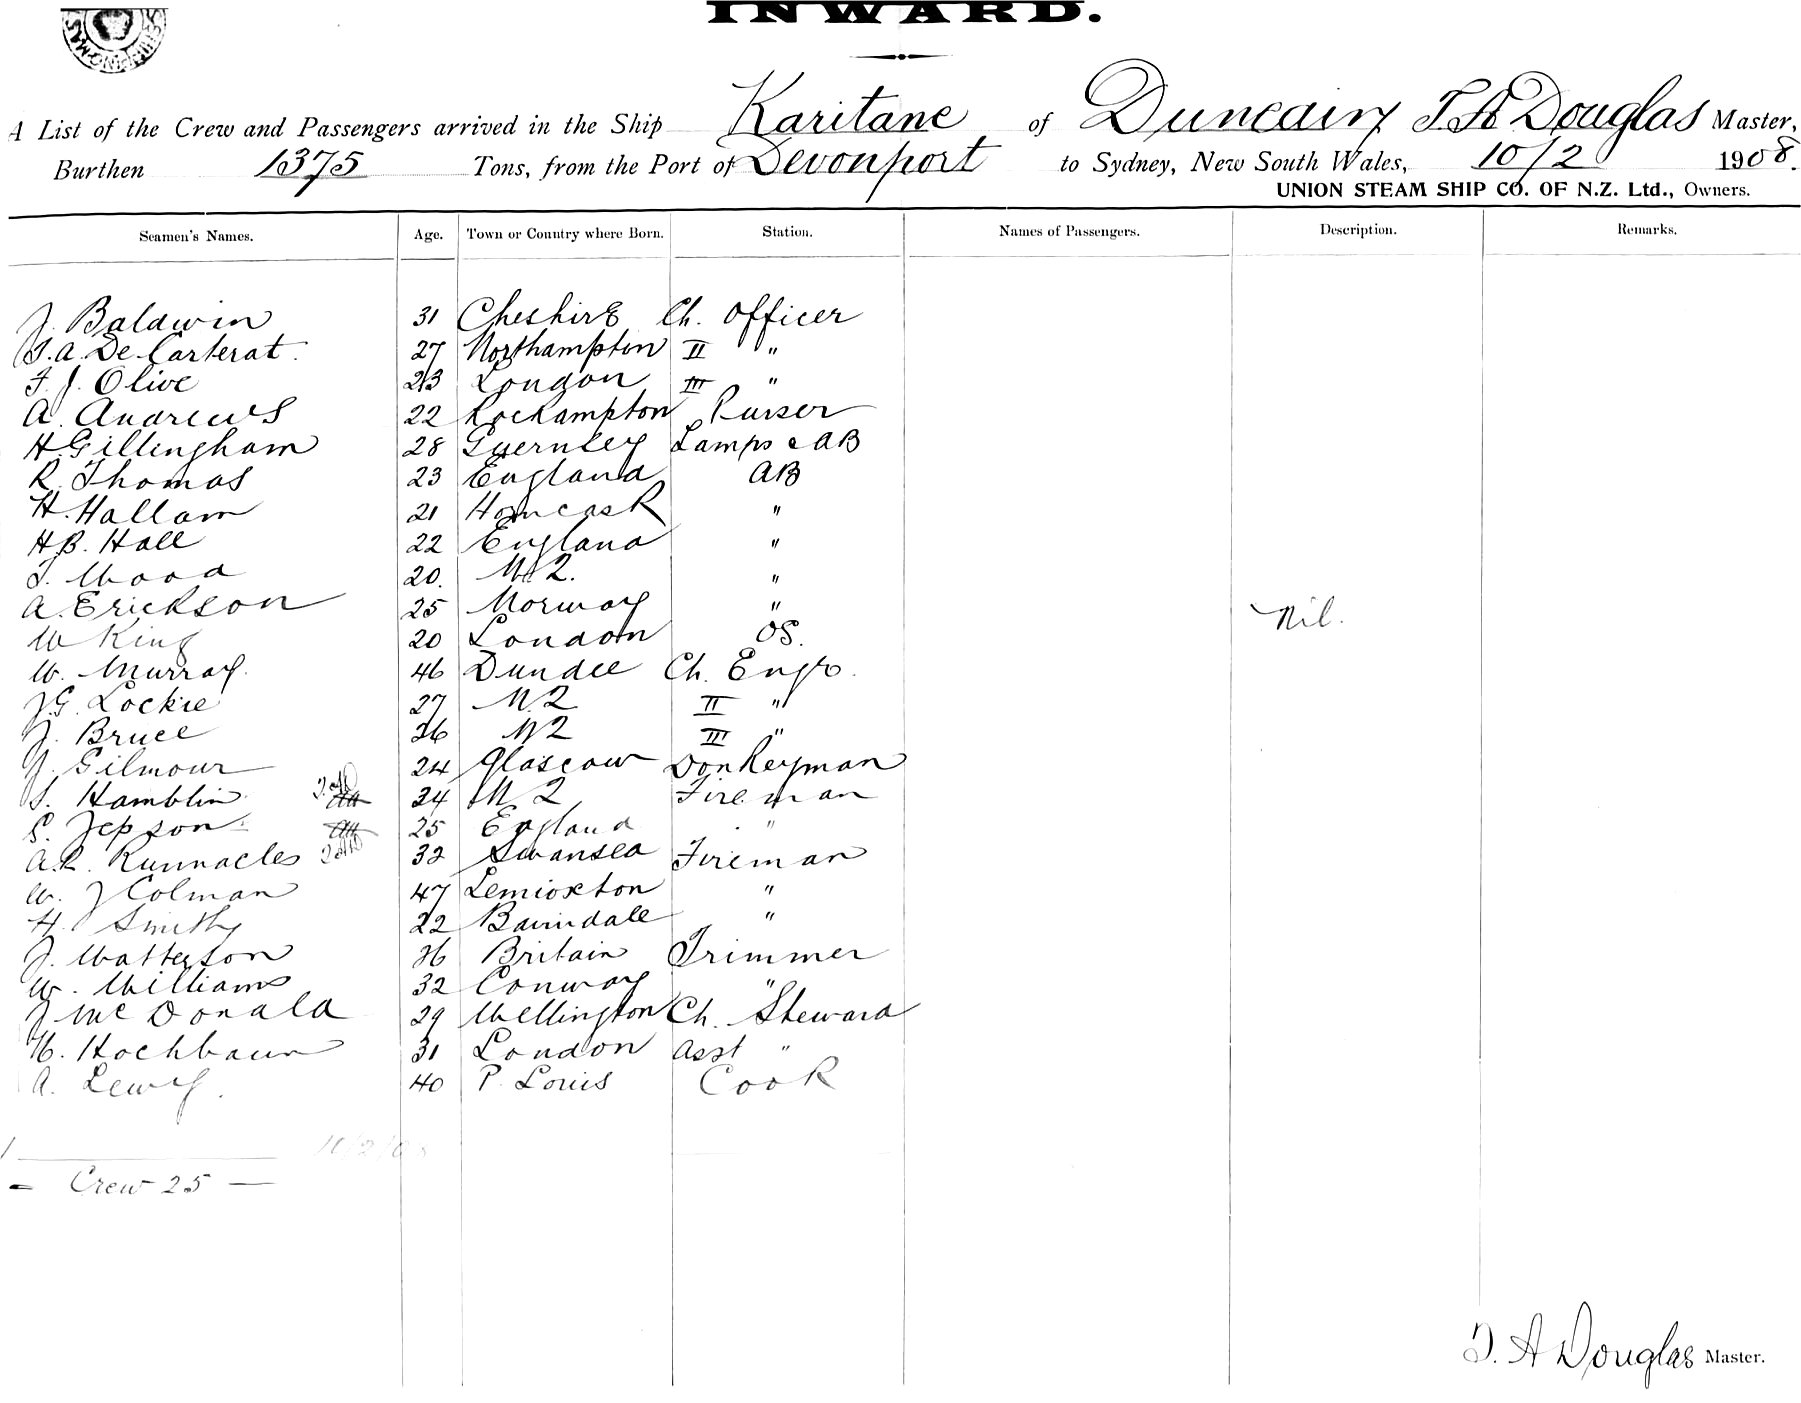 INWARD.
A List of the Crew and Passengers arrived in the Ship Karitane of Duncairn T A Douglas Master,
Burthen 1375 Tons, from the Port of Devonport to Sydney, New South Wales, 10/2 1908.
UNION STEAM SHIP CO. OF N.Z. Ltd., Owners.
Seamen's Names. Age. Town or Country where Born. Station. Names of Passengers. Description. Remarks.
J. Baldwin 31 Cheshire Ch. Officer
T. A. De Carterat. 27 Northampton II "
F J. Olive 23 London III "
A. Andrews 22 Rockampton Purser
H Gillingham 28 Guernsey Lamps & AB
R. Thomas 23 England AB
H. Hallam 21 "
H B. Hall 22 England "
T. Wood 20. N Z. "
A. Erickson 25 Norway "
Nil.
W King 20 London OS.
W. Murray. 46 Dundee Ch. Engr.
J G. Lockie 27 N. Z II "
J. Bruce 26 N Z III "
J. Gilmour 24 Glascow Donkeyman
S. Hamblin 24 N Z Fireman
S. Jepson 25 England "
A. R. Runnacles 32 Swansea Fireman
W. J Colman 47 "
H. Smith 22 Bairndale "
J. Watterson 26 Britain Trimmer
W. Williams 32 Conway "
J McDonald 29 Wellington Ch. Steward
H. Hochbaum 31 London Asst "
A. Lewy. 40 P. Louis Cook
10/2/08
Crew 25
T. A Douglas Master.